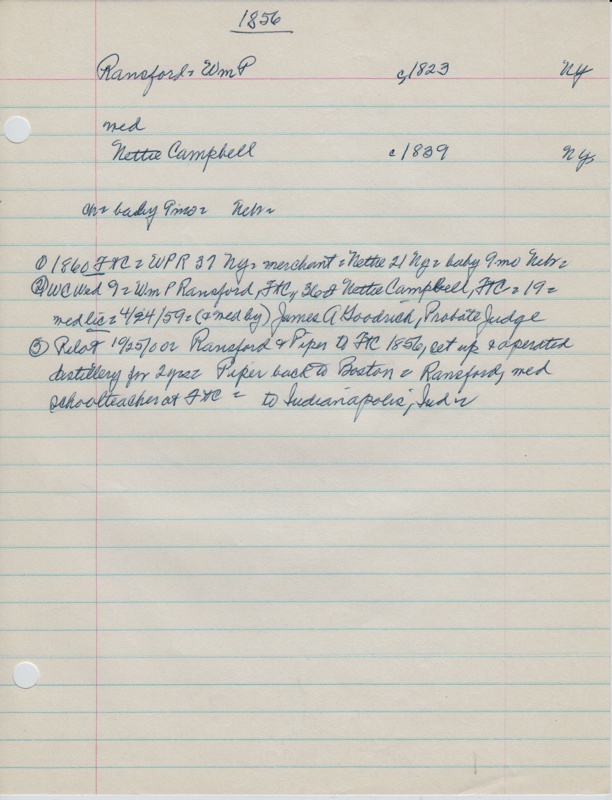 1856
Ransford = Wm P c 1823 NY
med
Nettie Campbell c 1839 NY
ch = baby 9 mo = Nebr =
① 1860 FtC = WPR 37 NY = merchant = Nettie 21 NY = baby 9 mo Nebr =
② WC Wed 9 = Wm P Ransford, FtC, 36 & Nettie Campbell, FtC = 19 =
med lic = 4/24/59 = (& med by) James A Goodrich, Probate Judge
③ Pilot = Ransford & Piper to FtC 1856, set up & operated
distillery for 2 yrs = Piper back to Boston = Ransford, med
schoolteacher at FtC = to Indianapolis, Ind =